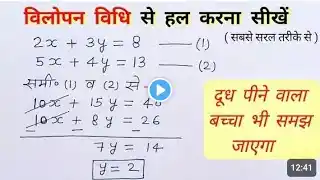 विलोपन विधि से हल करना सीखें
( सबसे सरल तरीके से )
2x + 3y = 8 —— (1)
5x + 4y = 13 —— (2)
समी० (1) व (2) से -
10x + 15y = 40
10x + 8y = 26
— — —
7y = 14
y = 2
दूध पीने वाला
बच्चा भी समझ
जाएगा
12:41